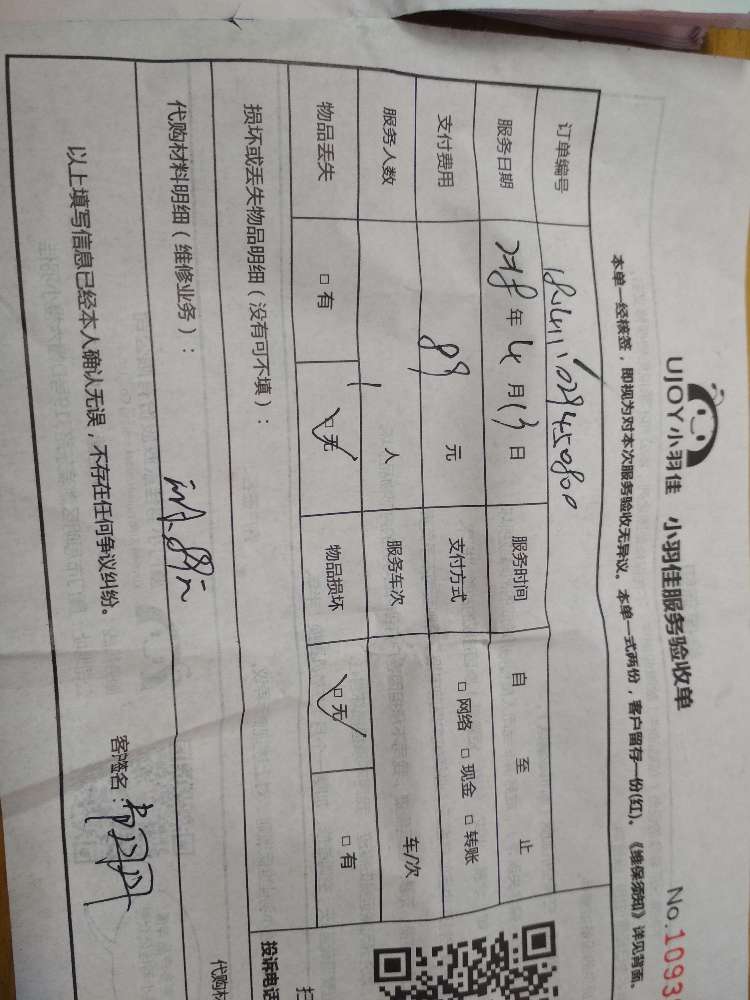 UJOY小羽佳 小羽佳服务验收单 No.1093
本单一经核签，即视为对本次服务验收无异议。本单一式两份，客户留存一份(红)。《维保须知》详见背面。
订单编号
服务日期 年 4 月 13 日 服务时间 自 至 止
支付费用 89 元 支付方式 □ 网络 □ 现金 □ 转账
服务人数 1 人 服务车次 车/次
物品丢失 □ 有 □ 无 物品损坏 □ 无 □ 有
损坏或丢失物品明细（没有可不填）：
代购材料明细（维修业务）：
以上填写信息已经本人确认无误，不存在任何争议纠纷。
客户签名：
投诉电话
代购材